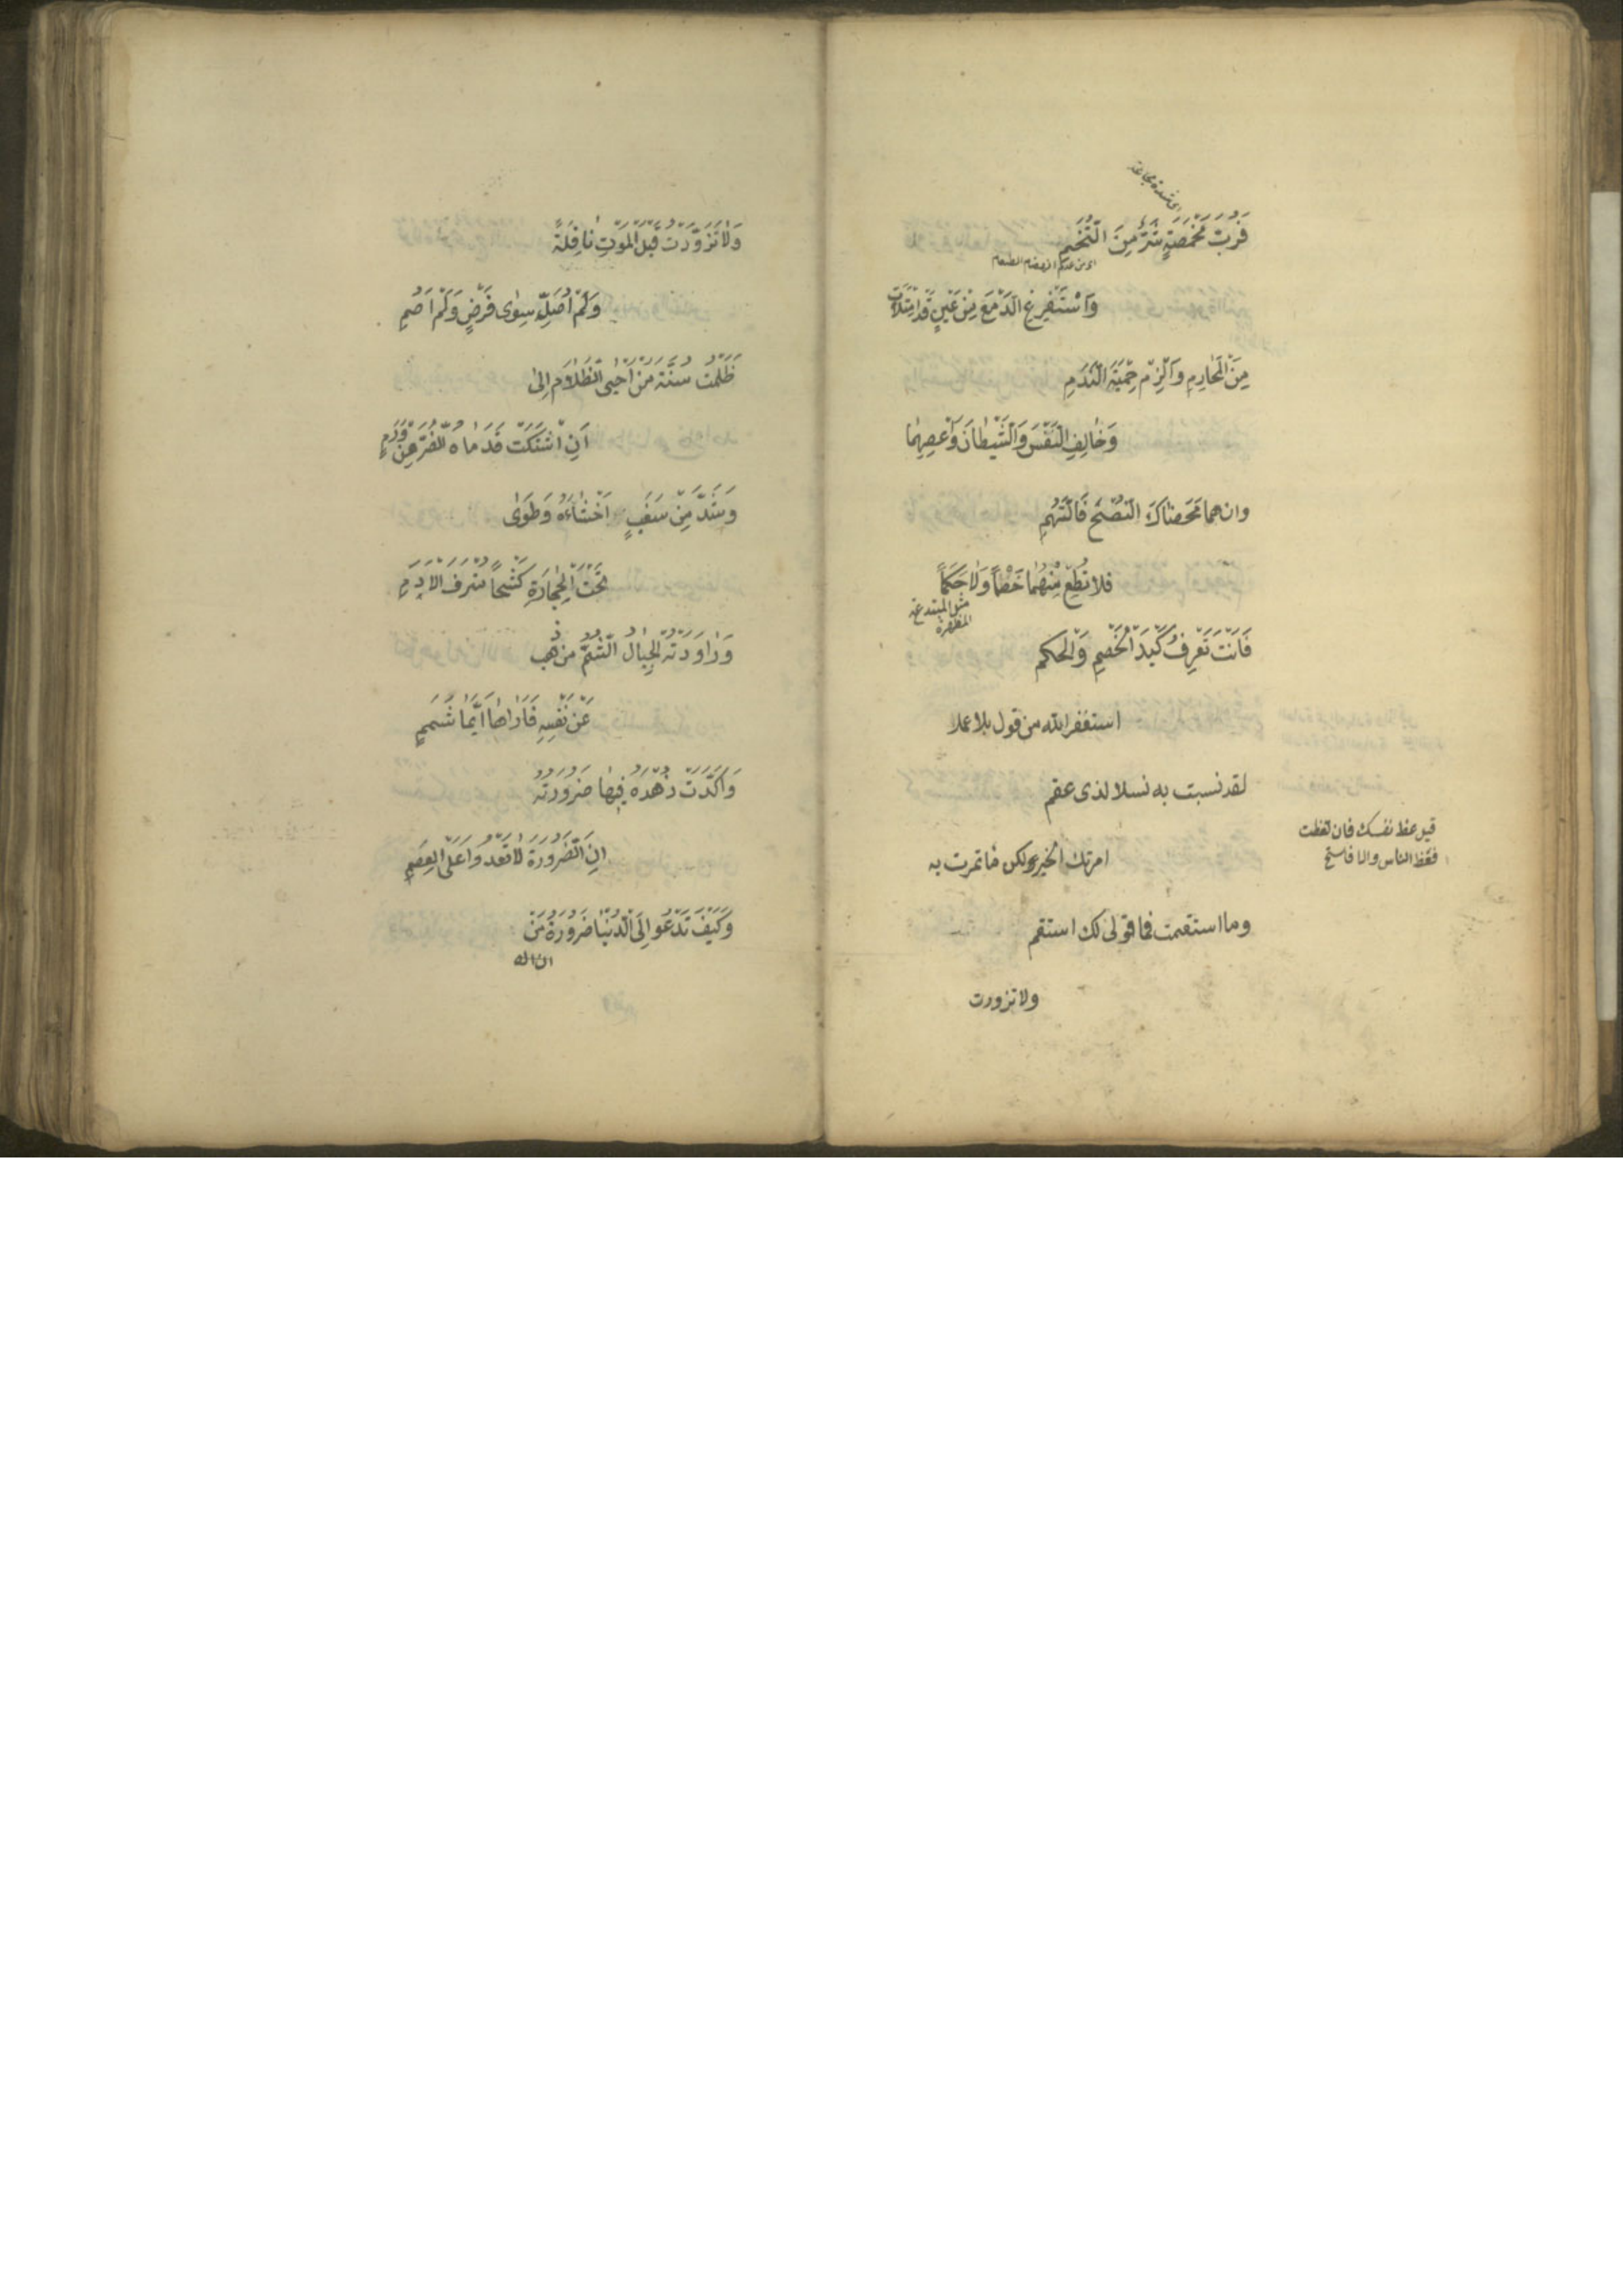 اى شدة مجاعة
فَرُبَّ مَخْمَصَةٍ شَرٌّ مِنَ التُّخَمِ
اى من عدم انهضام الطعام
وَاسْتَفْرِغِ الدَّمْعَ مِنْ عَيْنٍ قَدِ امْتَلَأَتْ
مِنَ الْمَحَارِمِ وَالْزَمْ حِمْيَةَ النَّدَمِ
وَخَالِفِ النَّفْسَ وَالشَّيْطَانَ وَاعْصِهِمَا
وان هما مَحَضَاكَ النُّصْحَ فَاتَّهِمِ
فلا تُطِعْ مِنْهُمَا خَصْمًا وَلَا حَكَمًا
فَاَنْتَ تَعْرِفُ كَيْدَ الْخَصْمِ وَالْحَكَمِ
استغفر الله من قول بلا عمل
لقد نسبت به نسلا لذى عقم
قيل عظ نفسك فان تعظت
فعظ الناس والا فاستح
امرتك الخير ولكن ما تمرت به
وما استقمت فما قولى لك استقم
ولا تزودت
وَلَا تَزَوَّدْتُ قَبْلَ الْمَوْتِ نَافِلَةً
وَلَمْ اُصَلِّ سِوٰى فَرْضٍ وَلَمْ اَصُمِ
ظَلَمْتُ سُنَّةَ مَنْ اَحْيَى الظَّلَامَ اِلٰى
اَنِ اشْتَكَتْ قَدَمَاهُ الضُّرَّ مِنْ وَرَمٍ
وَشَدَّ مِنْ سَغَبٍ اَحْشَاءَهُ وَطَوٰى
تَحْتَ الْحِجَارَةِ كَشْحًا مُتْرَفَ الْاَدَمِ
وَرَاوَدَتْهُ الْجِبَالُ الشُّمُّ من ذهب
عَنْ نَفْسِهِ فَاَرَاهَا اَيَّمَا شَمَمٍ
وَاَكَّدَتْ زُهْدَهُ فِيهَا ضَرُورَتُهُ
اِنَّ الضَّرُورَةَ لَا تَعْدُوا عَلَى الْعِصَمِ
وَكَيْفَ تَدْعُو اِلَى الدُّنْيَا ضَرُورَةُ مَنْ